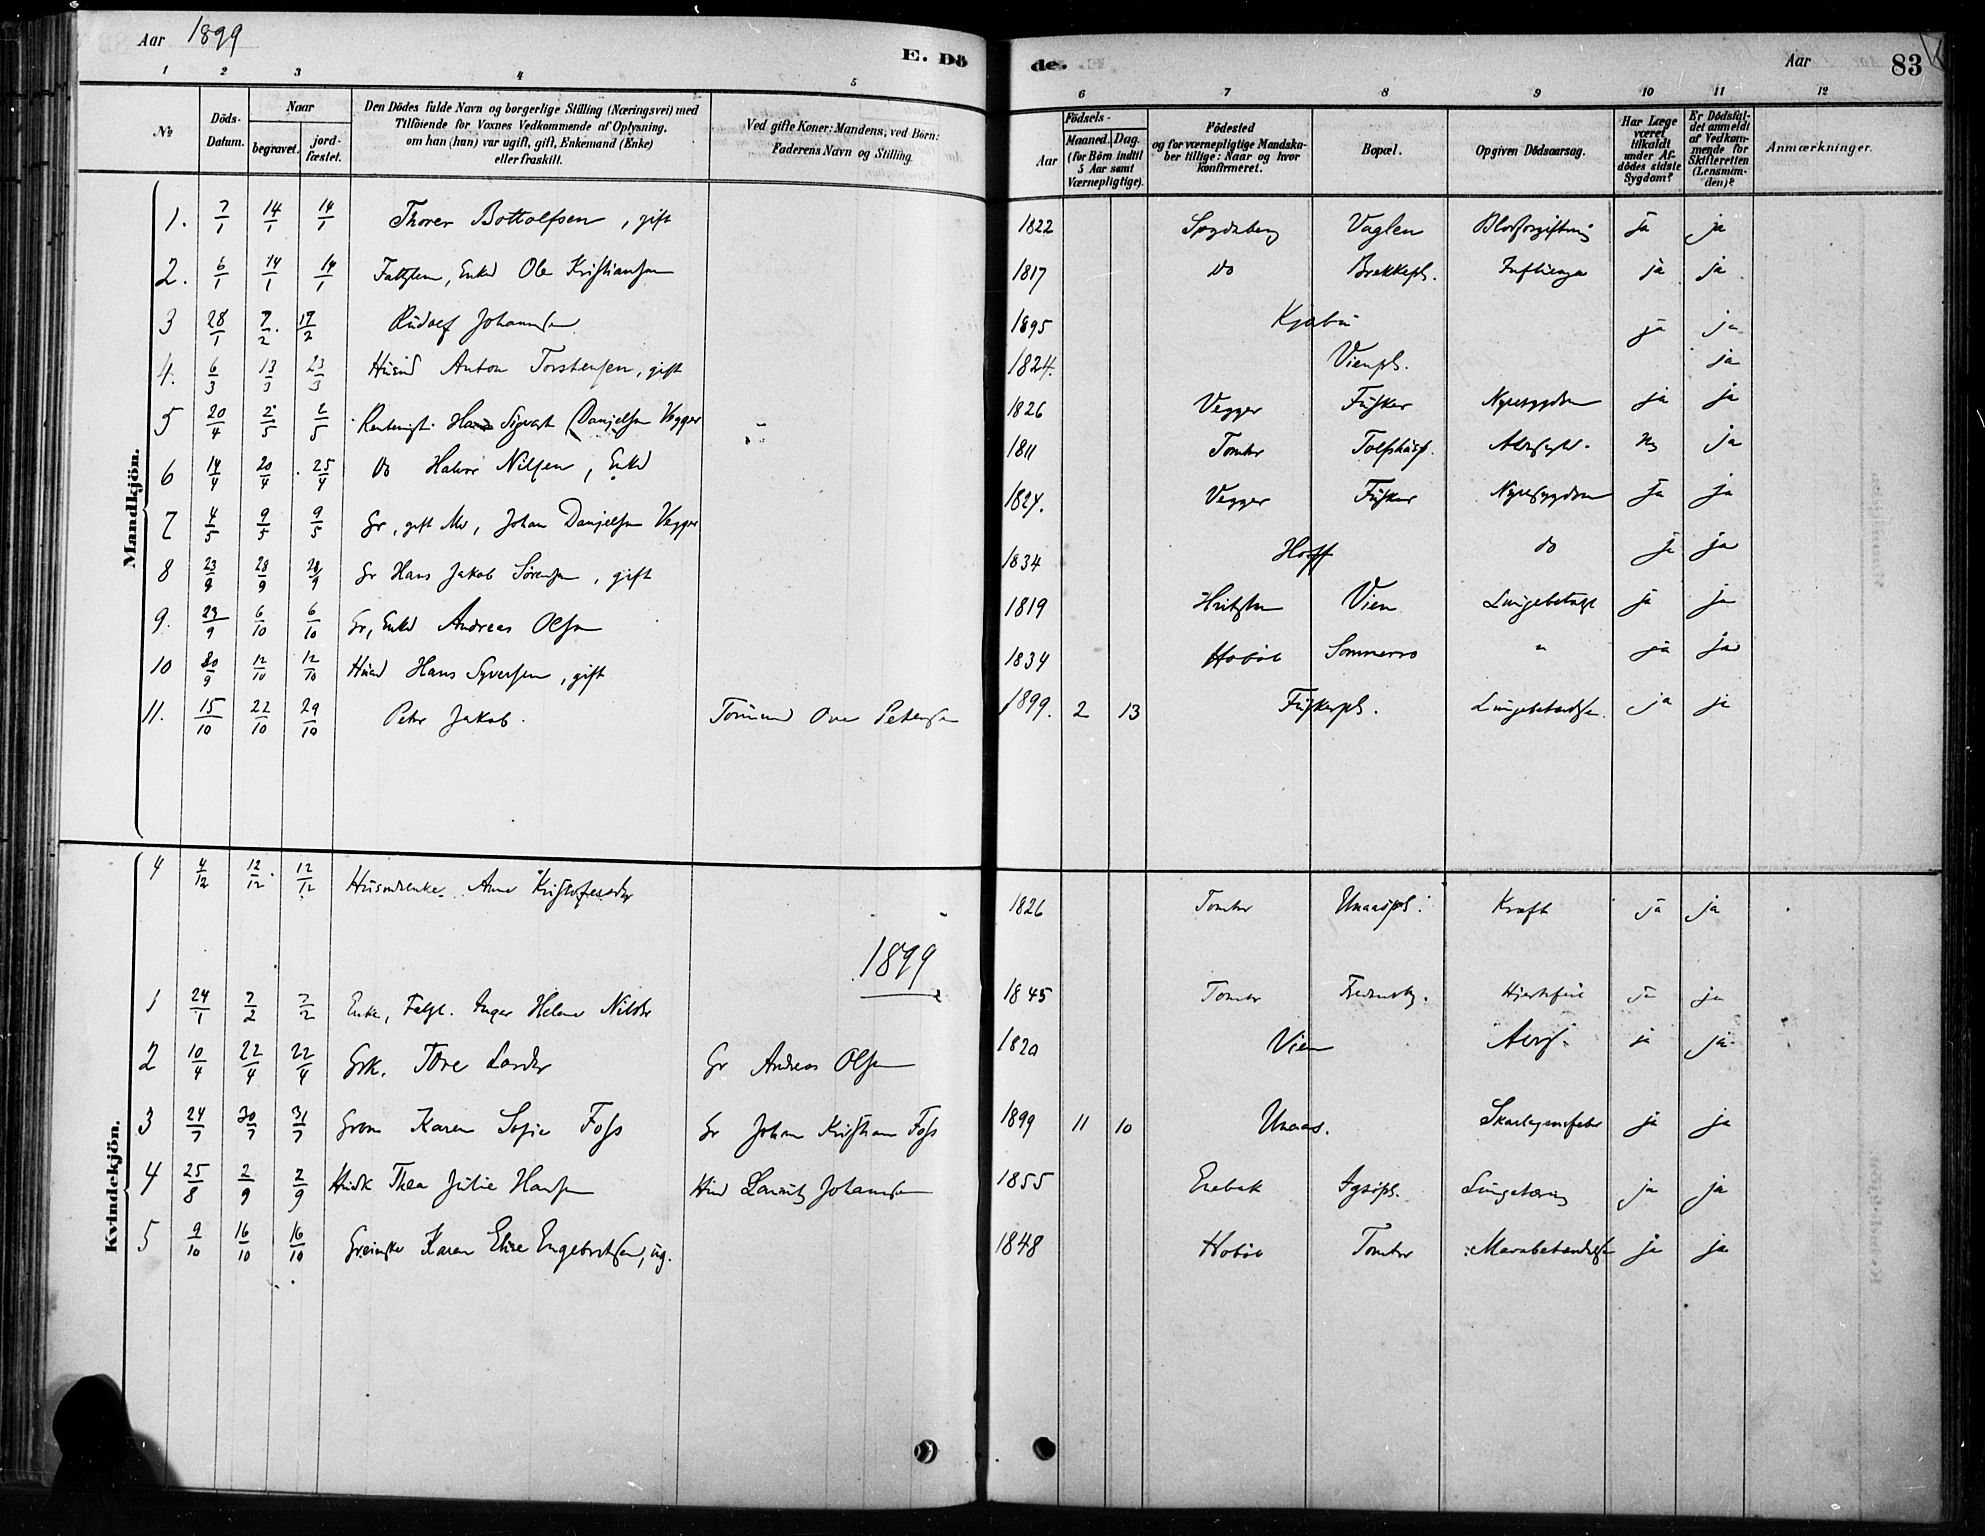 Aar 1899
E. Dö de.
Aar
83
1 2 3 4 5 6 7 8 9 10 11 12
No
Döds-Datum.
Naar
begravet.
jord-fæstet.
Den Dödes fulde Navn og borgerlige Stilling (Næringsvei) med
Tilföiende for Voxnes Vedkommende af Oplysning,
om han (hun) var ugift, gift, Enkemand (Enke)
eller fraskilt.
Ved gifte Koner: Mandens, ved Börn:
Faderens Navn og Stilling.
Aar
Födsels-
Maaned. Dag.
(for Börn indtil
5 Aar samt
Værnepligtige).
Födested
og for værnepligtige Mandska-
ber tillige: Naar og hvor
konfirmeret.
Bopæl.
Opgiven Dödsaarsag.
Har Læge
været
tilkaldt
under Af-
dödes sidste
Sygdom?
Er Dödsfal-
det anmeldt
af Vedkom-
mende for
Skifteretten
(Lensman-
den)?
Anmærkninger.
Mandkjön.
1. 7/1 14/1 14/1 Thorer Bottolfsen, gift 1822 Spydeberg Vaglen Blodforgiftning ja ja
2. 6/1 14/1 14/1 Enkd Ole Kristiansen 1817 do Brekkepl. Influenza ja ja
3 28/1 7/2 19/2 Rudolf Johannsen 1895 ja ja
4. 6/3 13/3 23/3 Husmd Anton Torstensen, gift 1824. Vienpl. ja
5 20/4 2/5 2/5 Hans Sigvart Danjelsen Vegger 1826 Vegger Fusker Nyresygdom ja ja
6 14/4 20/4 25/4 do Halvor Nilsen, Enkd 1811 Tomter ja
7 4/5 9/5 9/5 Gr, gift Johan Danjelsen Vegger 1827. Vegger Fusker Nyresygdom ja ja
8 23/9 28/9 28/9 Gr Hans Jakob Sørensen, gift 1834 Hoff do ja ja
9. 29/9 6/10 6/10 Gr, Enkd Andreas Olsen 1819 Vien ja ja
10 30/9 12/10 12/10 Husmd Hans Syversen, gift 1834 Hobøl Sommerro " ja ja
11. 15/10 22/10 29/10 Peter Jakob. Ove Petersen 1899. 2 13 Fuskerpl. Lungebetændelse ja ja
Kvindekjön.
4 4/12 12/12 12/12 Husmdsenke Anne Kristofersdtr 1826 Tomter Unaaspl. Kræft ja ja
1899
1 24/1 7/2 7/2 Enke, Inger Helene Nilsdtr 1845 Tomter Hjertefeil ja ja
2 10/4 22/4 22/4 Grk. Tore Larsdtr Gr Andreas Olsen 1820 Vien ja ja
3 24/7 30/7 31/7 Karen Sofie Foss Gr Johan Kristian Foss 1899 11 10 Unaas. Skarlagensfeber ja ja
4 25/8 2/9 2/9 Husk Thea Julie Hansen Husmd Lauritz Johannsen 1855 Enebak Lungetæring ja ja
5 9/10 16/10 16/10 Karen Elise Engebretsen, ug. 1848 Hobøl Tomter Mavebetændelse ja ja